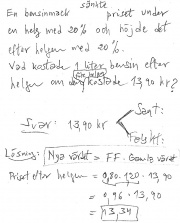 sänkte
En bensinmack priset under
en helg med 20% och höjde det
efter helgen med 20%.
Vad kostade 1 liter bensin efter
helgen om den kostade 13,90 kr?
Sant:
Svar: 13,90 kr
Falskt:
Lösning: Nya värdet = FF · Gamla värdet
Priset efter helgen = 0,80 · 1,20 · 13,90
= 0,96 · 13,90
= 13,34